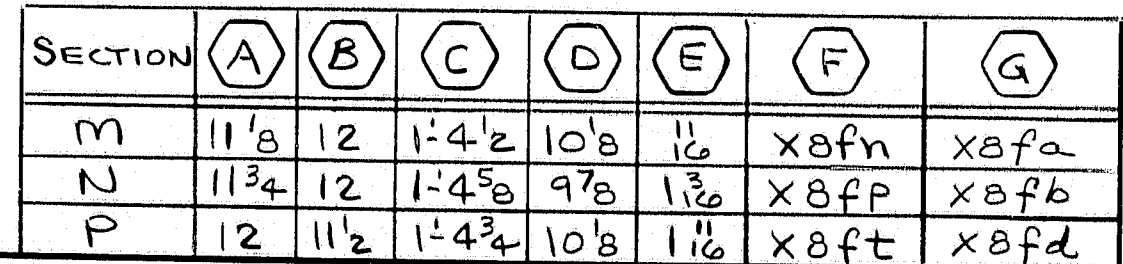 SECTION A B C D E F G
M 11 1/8 12 1'-4 1/2 10 1/8 11/16 x8fn x8fa
N 11 3/4 12 1'-4 5/8 9 7/8 1 3/16 x8fp x8fb
P 12 11 1/2 1'-4 3/4 10 1/8 1 11/16 x8ft x8fd